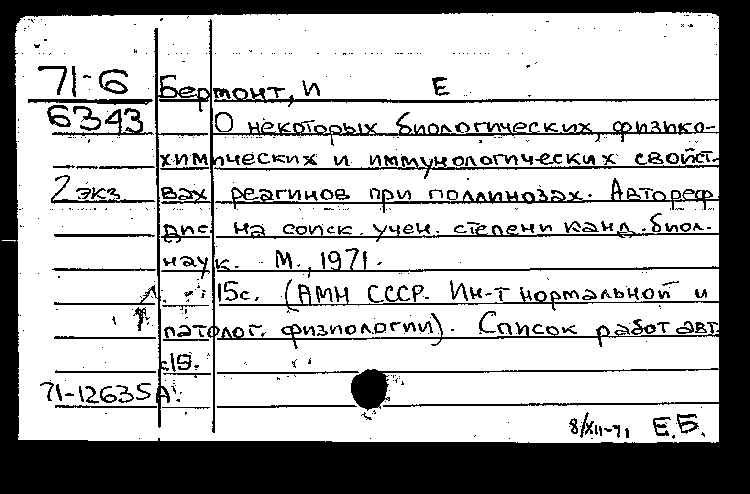 71-6 Бермонт, И Е
6343 О некоторых биологических, физико-
химических и иммунологических свойст-
2 экз вах реагинов при поллинозах. Автореф
дис на соиск. учен. степени канд. биол.
наук. М., 1971.
15с. (АМН СССР. Ин-т нормальной и
патолог. физиологии). Список работ авт.
с15.
71-12635А
8/XII-71 Е.Б.